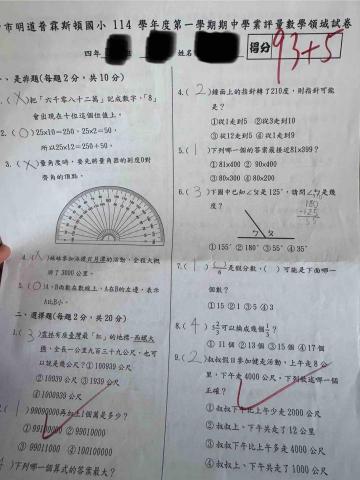 市明道普霖斯頓國小 114 學年度第一學期期中學業評量數學領域試卷
四年 班 姓名
得分 93+5
一、是非題(每題2分,共10分)
1.(X)把「六千零八十二萬」記成數字,「8」
會出現在十位這個位值上。
2.(O)25x10=250,25x2=50,
所以25x12=250+50。
3.(X)量角度時,要先將量角器的刻度0對
齊角的頂點。
4.(X)
了3000公里。
5.(O)A、B兩數在數線上,A在B的左邊,表示
A比B小。
二、選擇題(每題2分,共20分)
1.(3)雲林有座臺灣最「長」的地標-西螺大
橋,全長一公里九百三十九公尺,也可
以說是幾公尺?①100939公尺
②10939公尺 ③1939公尺
④1000939公尺
(1)99090000再加上1個萬是多少?
①99100000 ②99010000
③99011000 ④100100000
)下列哪一個算式的答案最大?
4.(2)鐘面上的指針轉了210度,則指針可能
是?
①從1走到5 ②從3走到10
③從12走到5 ④從1走到9
5.(1)下列哪一個的答案最接近81x399?
①81x400 ②90x400
③80x300 ④80x200
6.(3)下圖中已知∠女是125°,請問∠力是幾
度?
180
-125
55
①155° ②180° ③55° ④35°
7.(1)是假分數,( )可能是下面哪一
個數?
①15 ②1 ③5 ④3
8.(4)5⅔可以換成幾個⅓?
①11個 ②13個 ③15個 ④17個
9.(2)叔叔假日參加健走活動,上午走8公
里,下午走4000公尺,下列敘述哪一個
正確?
①叔叔下午比上午少走2000公尺
②叔叔上午、下午共走了12公里
③叔叔下午比上午多走4000公尺
④叔叔上午、下午共走了1000公尺